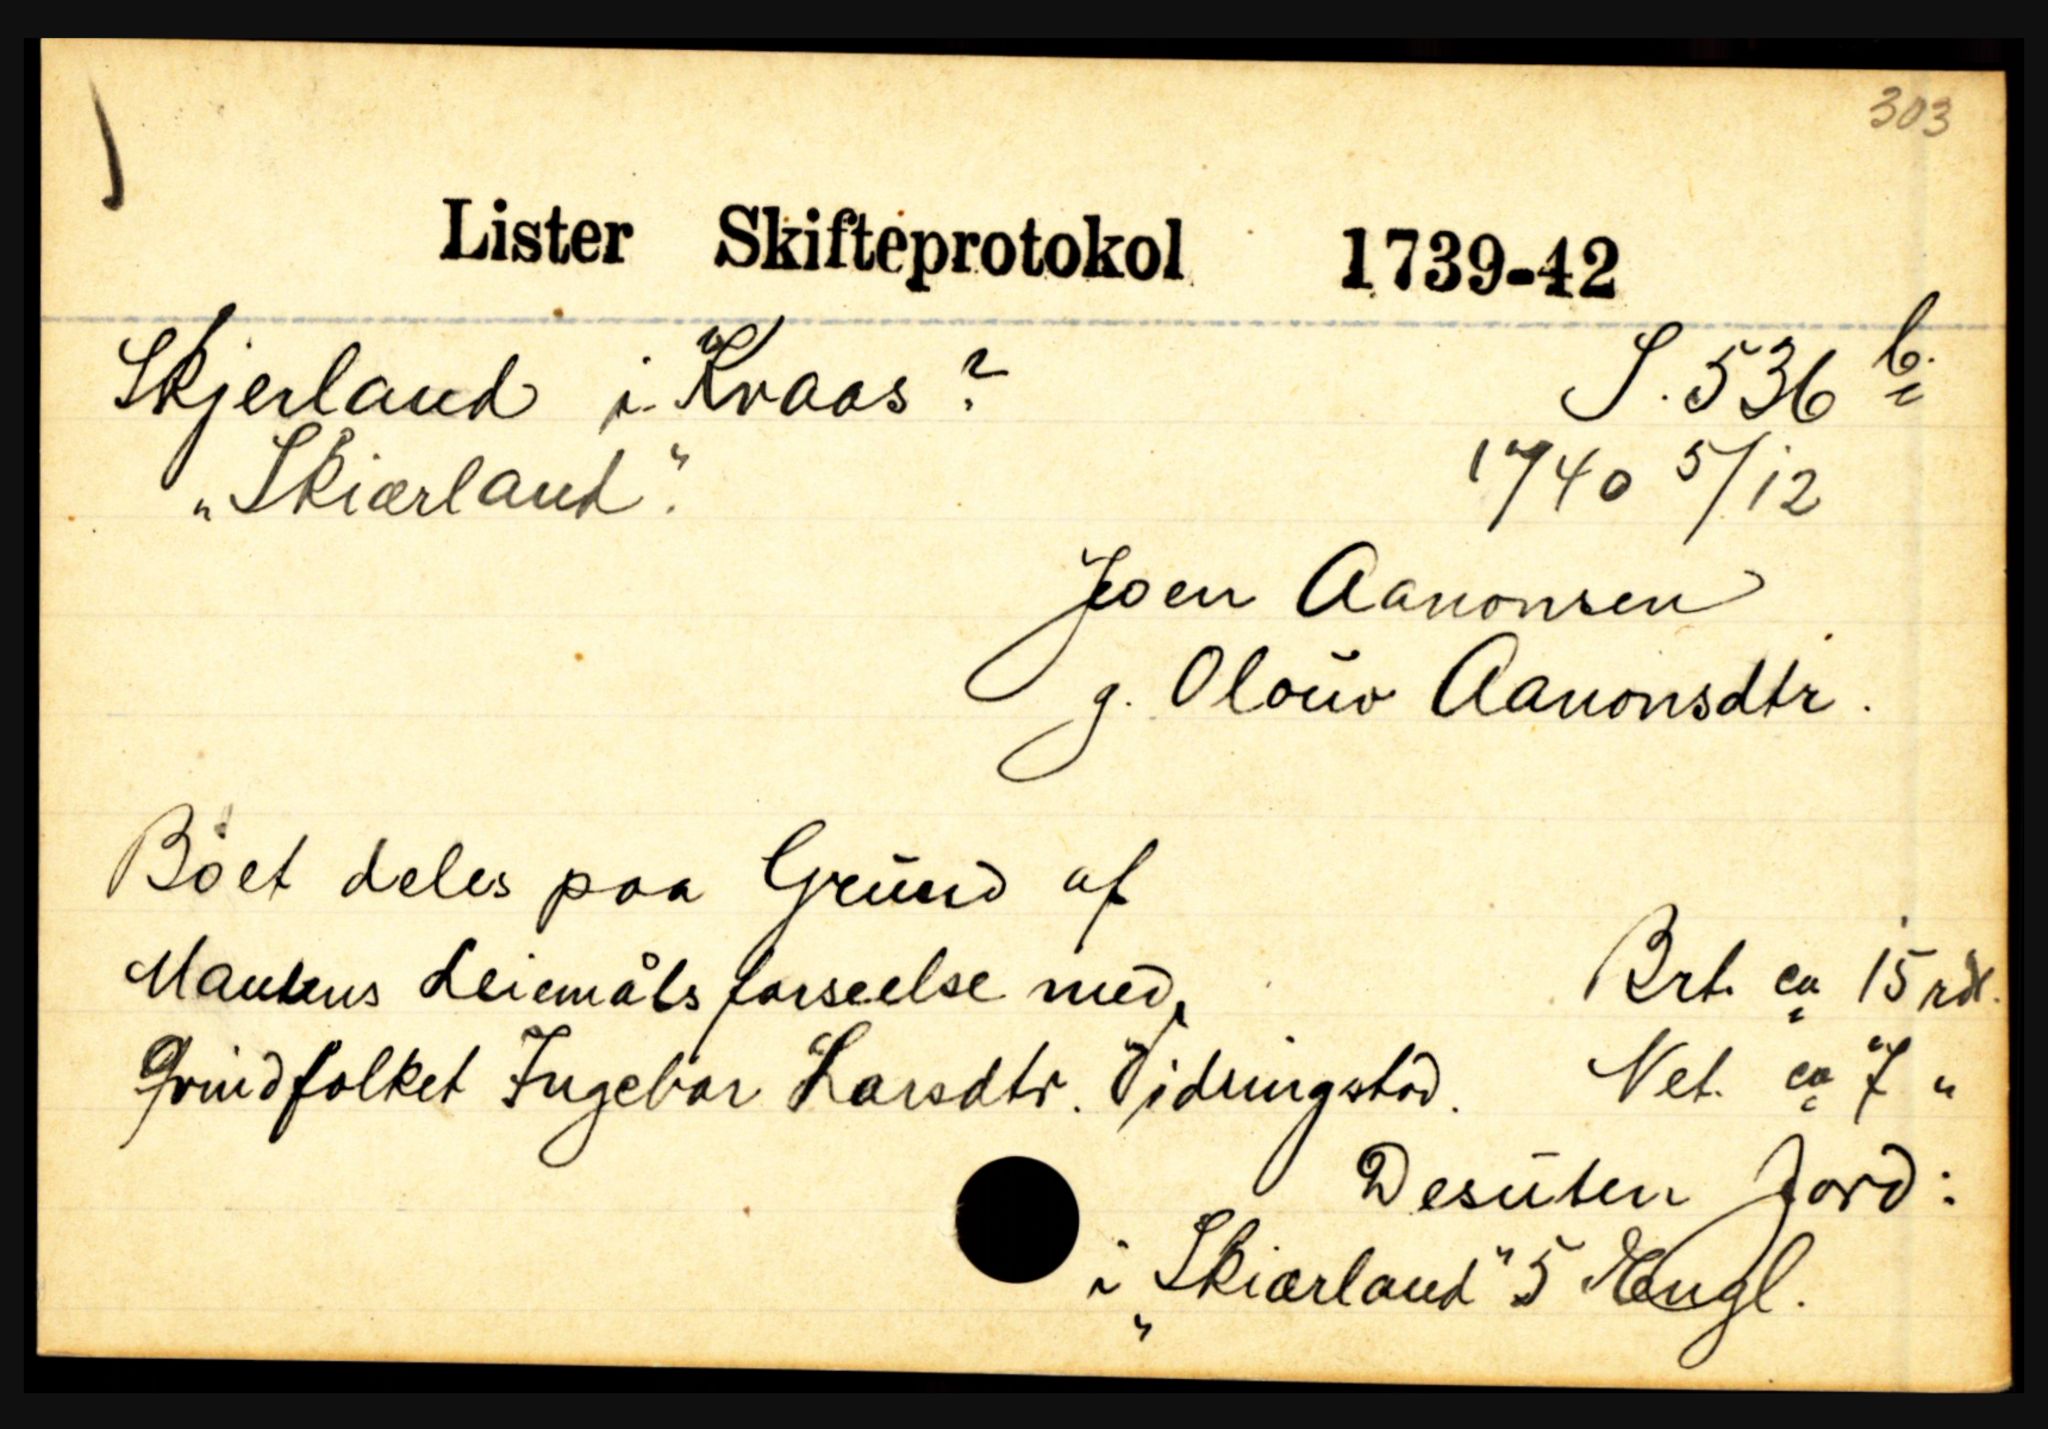 303
Lister Skifteprotokol 1739-42
Skjerland i Kvaas? S. 536 b.
"Skiærland". 1740 5/12
Joen Aanonsen
g. Olouv Aanonsdtr.
Boet deles paa Grund af
Mannens Leiemåls forseelse med
Qvindfolket Ingebor Larsdtr. Vidringstad.
Brt. ca 15 rdl.
Net. ca 7 "
Desuten Jord:
i "Skiærland" 5 Engl.